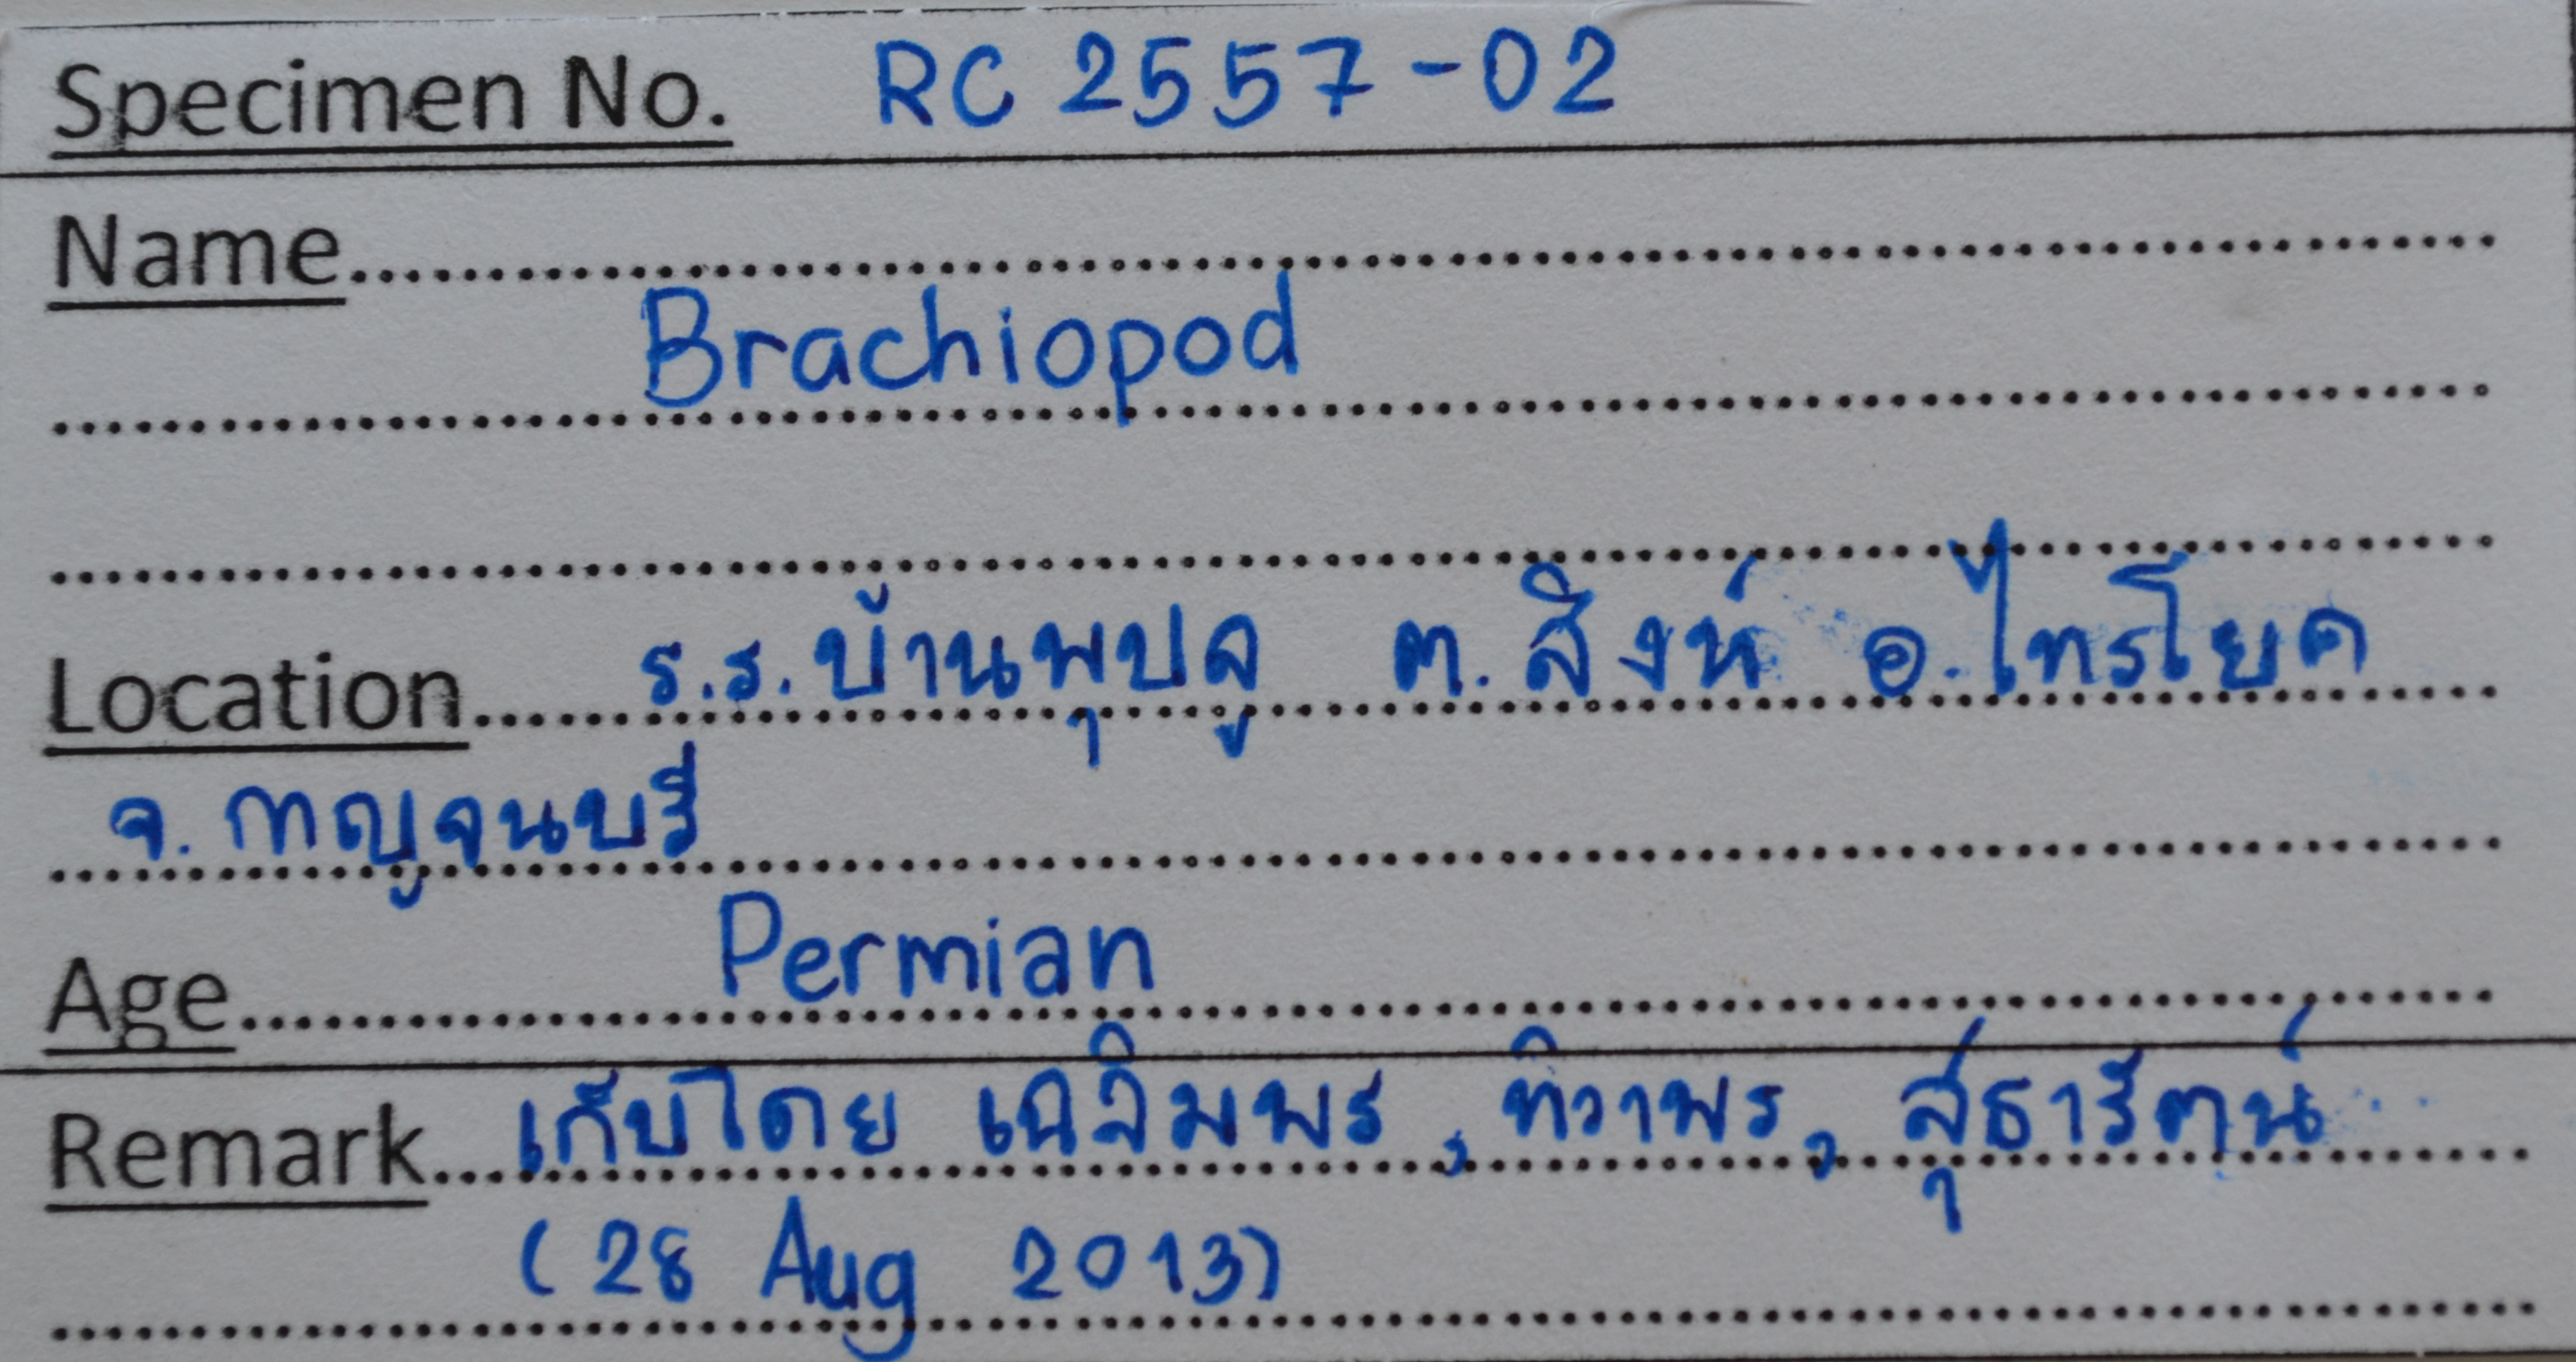 Specimen No. RC 2557-02
Name
Brachiopod
Location ร.ร.บ้านพุปลู ต.สิงห์ อ.ไทรโยค
จ.กาญจนบรี
Age Permian
Remark เก็บโดย เฉลิมพร, ทิวาพร, สุ่ธารัตน์
(28 Aug 2013)